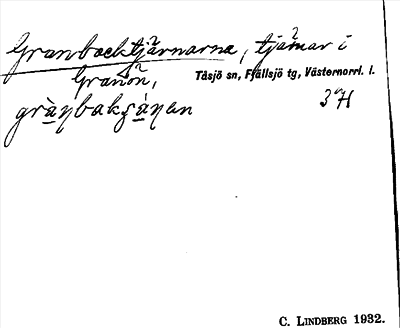 Granbacktjärnarna, tjärnar i
Granön, Tåsjö sn, Fjällsjö tg, Västernorrl. l.
3 H
C. LINDBERG 1932.